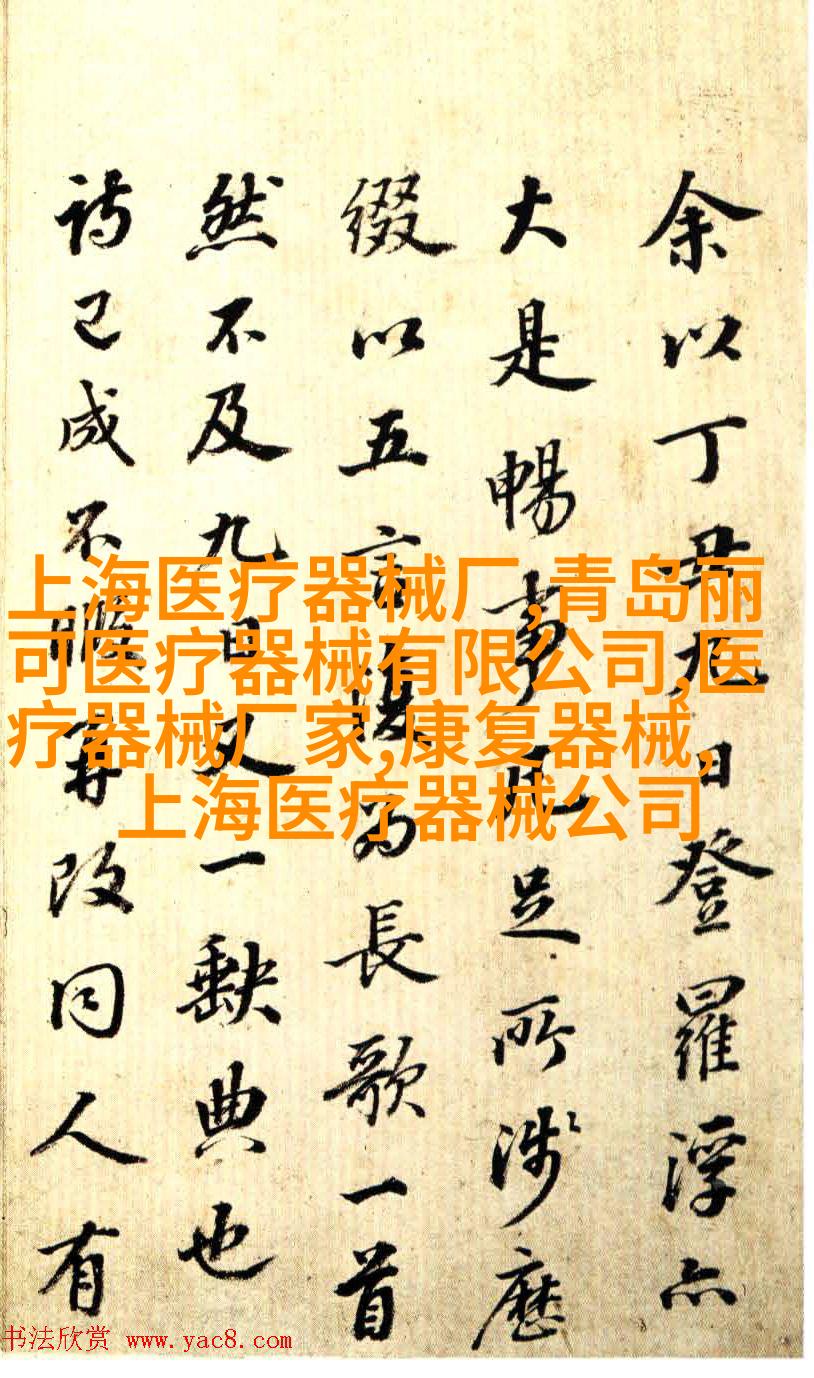 余以丁丑九日登羅浮亦
大是暢事凡足所涉歷
綴以五言復為長歌一首
然不及九日又一缺典也
詩已成不暇再改同人有
上海医疗器械厂,青岛丽
可医疗器械有限公司,医
疗器械厂家,康复器械,
上海医疗器械公司
书法欣赏 www.yac8.com